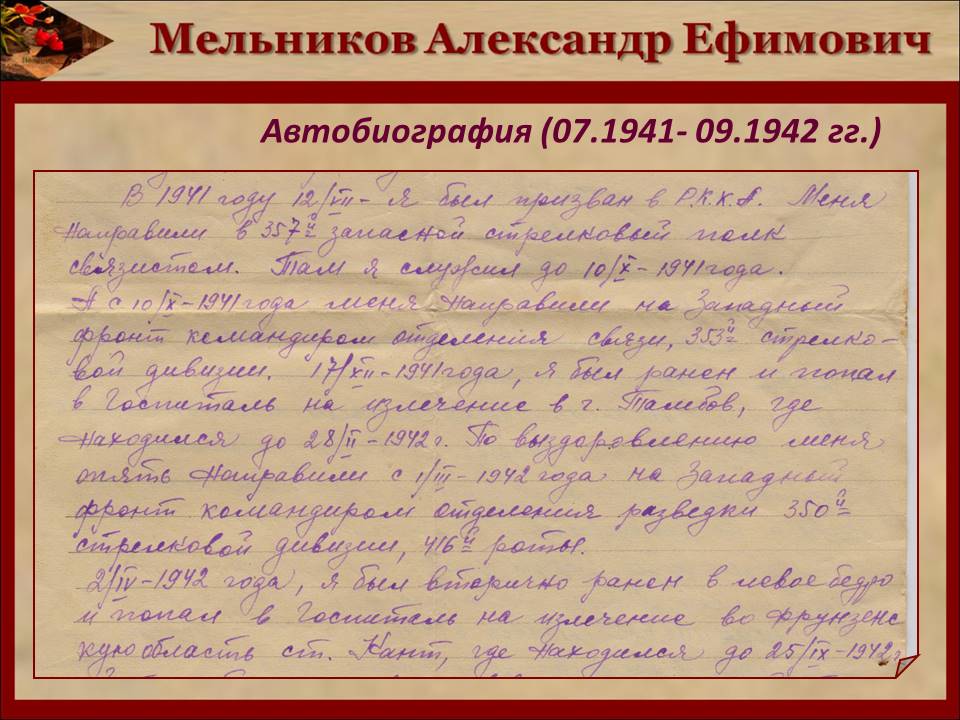 Мельников Александр Ефимович
Автобиография (07.1941- 09.1942 гг.)
В 1941 году 12/VII- я был призван в Р.К.К.А. Меня
направили в 357й запасной стрелковый полк
связистом. Там я служил до 10/X-1941 года.
А с 10/X-1941 года меня направили на Западный
фронт командиром отделения связи, 353й стрелко-
вой дивизии. 17/XII-1941 года, я был ранен и попал
в Госпиталь на излечение в г. Тамбов, где
находился до 28/II-1942 г. По выздоровлению меня
опять направили с 1/III-1942 года на Западный
фронт командиром отделения разведки 350й
стрелковой дивизии, 416й роты.
2/IV-1942 года, я был вторично ранен в левое бедро
и попал в Госпиталь на излечение во Фрунзенс
кую область ст. Кант, где находился до 25/IX-1942 г